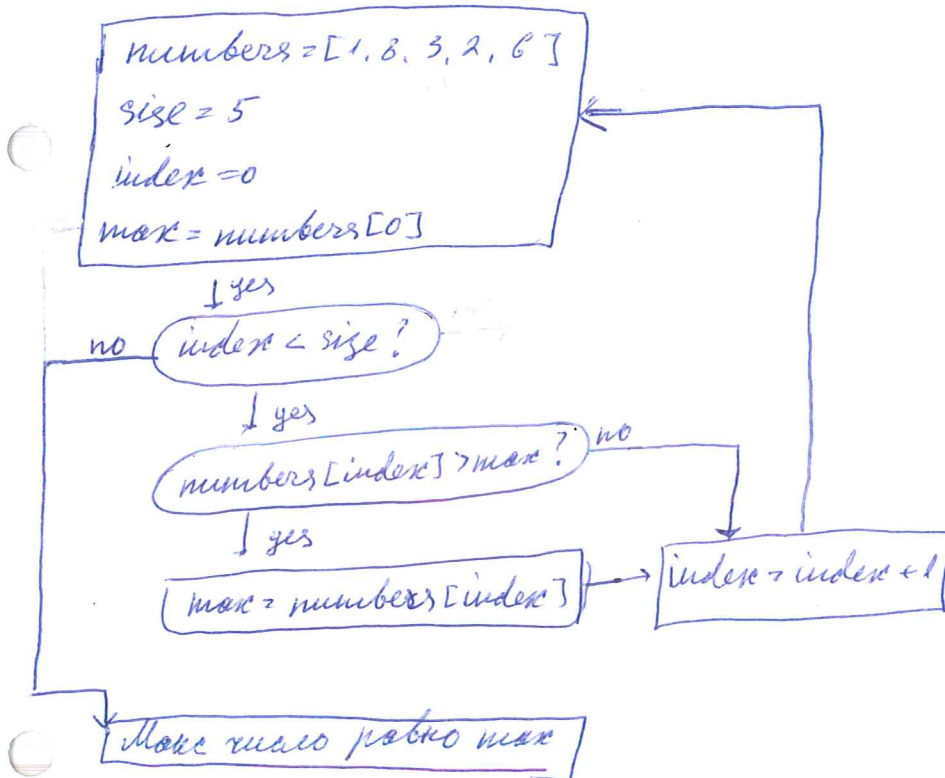 numbers = [1, 8, 3, 2, 6]
size = 5
index = 0
max = numbers[0]
yes
no
index < size?
yes
numbers[index] > max?
no
yes
max = numbers[index]
index = index + 1
Макс число равно max